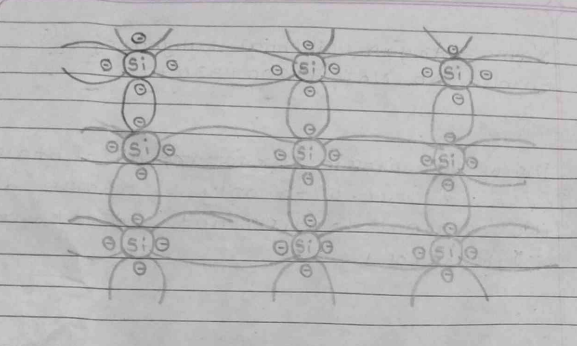 Si Si Si
Si Si Si
Si Si Si